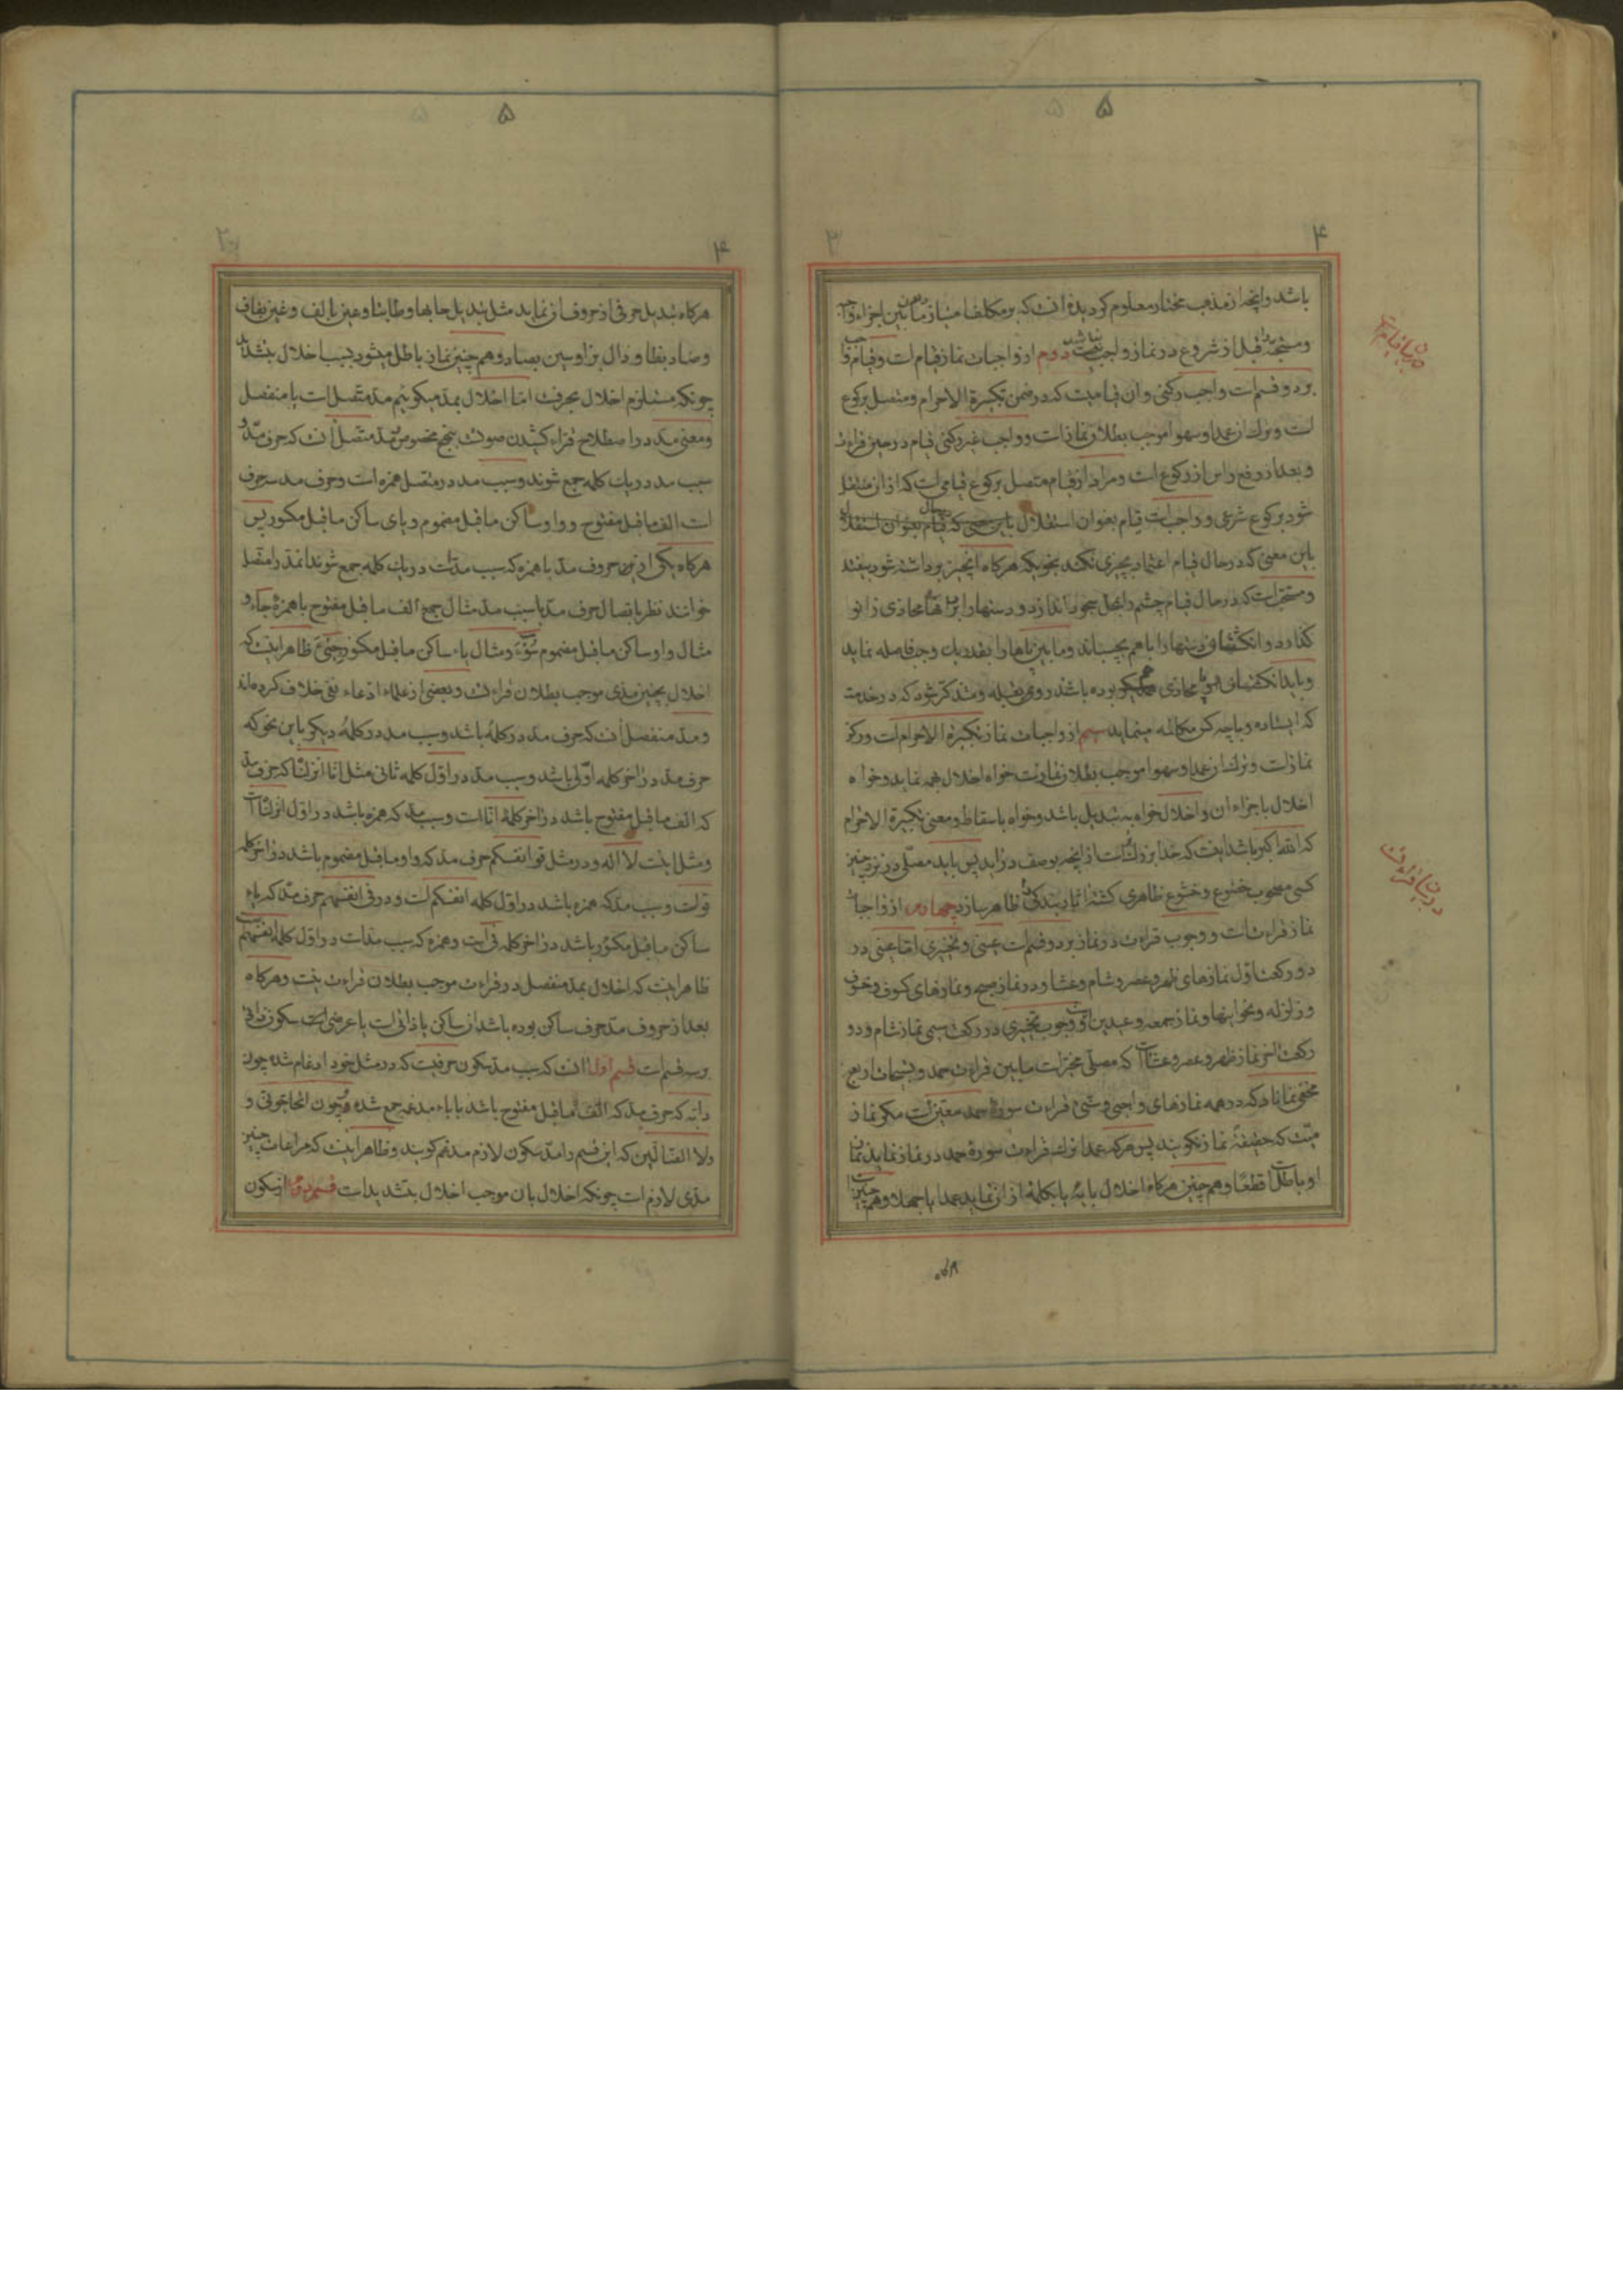 ۵
۴
باشد و انچه از مذهب مختار معلوم کردیده انست که بر مکلف امتیاز مابین اجزاء واجبه
و مستحبه قبل از شروع در نماز واجب نیست دویم از واجبات نماز قیام است و قیام
بر دو قسم است واجب رکنی و ان قیامیست که در ضمن تکبیرة الاحرام و متصل برکوع
است و ترک ان عمدا و سهوا موجب بطلان نماز است و واجب غیر رکنی قیام در حین قراءت
و بعد از رفع راس از رکوع است و مراد از قیام متصل برکوع قیامی است که از ان منتقل
شود برکوع شرعی و واجب است قیام بعنوان استقلال
باین معنی که در حال قیام اعتماد بچیزی نکند بنحویکه هرکاه انچیز برداشته شود بیفتد
و مستحب است که در حال قیام چشم را بمحل سجود اندازد و دستها را بر رانها محاذی زانو
کذارد و انکشتهای دستها را باهم بچسباند و مابین پاها را بقدر یک وجب فاصله نماید
و باید انکشتهای پا محاذی بوده باشد رو بقبله و متذکر شود که در خدمت
که ایستاده و با چه کس مکالمه مینماید سیم از واجبات نماز تکبیرة الاحرام است و رکن
نماز است و ترک ان عمدا و سهوا موجب بطلان نماز است خواه اخلال بهمه نماید و خواه
اخلال باجزاء ان و اخلال خواه به تبدیل باشد و خواه باسقاط و معنی تکبیرة الاحرام
که الله اکبر باشد اینست که خدا بزرک تر است از انچه بوصف درآید پس باید مصلی در نزد چنین
کسی مصحوب خضوع و خشوع ظاهری کشته اثار بندکی ظاهر سازد چهارم از واجبات
نماز قراءت است و وجوب قراءت در نماز بر دو قسم است عینی و تخییری اما عینی در
دو رکعت اول نمازهای ظهر و عصر و شام و عشا و در نماز صبح و نمازهای کسوف و خسوف
و زلزله و نحو اینها و نماز جمعه و عیدین است و وجوب تخییری در رکعت سیم نماز شام و دو
رکعت اخر نماز ظهر و عصر و عشا است که مصلی مخیر است مابین قراءت حمد و تسبیحات اربع
مخفی نماناد که در همه نمازهای واجبی و سنتی قراءت سوره حمد معتبر است مکر نماز
میت که حقیقة نماز نکویند پس هرکه عمدا ترک قراءت سورهٔ حمد در نماز نماید نماز
او باطل است قطعا و هم چنین هرکاه اخلال بایهٔ یا بکلمهٔ از ان نماید عمدا یا جهلا و هم چنین
در بیان قیام است
در بیان قراءت
هرکاه
۵
۴
هرکاه تبدیل حرفی از حروف ان نماید مثل تبدیل حا بها و طا بتا و عین بالف و غین بقاف
و ضاد بظا و ذال بزا و سین بصاد و هم چنین نماز باطل میشود بسبب اخلال بتشدید
چونکه مستلزم اخلال بحرفست اما اخلال بمد میکوییم مد متصل است یا منفصل
و معنی مد در اصطلاح قراء کشیدن صوت بنهج مخصوص مد متصل انست که حرف مد و
سبب مد در یک کلمه جمع شوند و سبب مد در متصل همزه است و حرف مد سه حرف
است الف ماقبل مفتوح و واو ساکن ماقبل مضموم و یای ساکن ماقبل مکسور پس
هرکاه یکی از این حروف مد با همزه که سبب مد است در یک کلمه جمع شوند انمد را متصل
خوانند نظر باتصال حرف مد با سبب مد مثال جمع الف ماقبل مفتوح با همزه جاء و
مثال واو ساکن ماقبل مضموم سوء و مثال یاء ساکن ماقبل مکسور جیء ظاهر اینست که
اخلال بچنین مدی موجب بطلان قراءت و بعضی از علماء ادعاء نفی خلاف کرده اند
و مد منفصل انست که حرف مد در کلمهٔ باشد و سبب مد در کلمهٔ دیکر باین نحو که
حرف مد در اخر کلمه اولی باشد و سبب مد در اول کلمه ثانی مثل انا انزلنا که حرف مد
که الف ماقبل مفتوح باشد در اخر کلمهٔ انا است و سبب مد که همزه باشد در اول انزلنا است
و مثل اینست لا اله و در مثل قوا انفسکم حرف مد که واو ماقبل مضموم باشد در اخر کلمه
قو است و سبب مد که همزه باشد در اول کلمه انفسکم است و در فی انفسهم حرف مد که یاء
ساکن ماقبل مکسور باشد در اخر کلمه فی است و همزه که سبب مد است در اول کلمه انفسهم است
ظاهر اینست که اخلال بمد منفصل در قراءت موجب بطلان قراءت نیست و هرکاه
بعد از حروف مد حرف ساکن بوده باشد ان ساکن یا ذاتی است یا عرضی است سکون ذاتی
بر سه قسم است قسم اول انست که سبب مد سکون حرفیست که در مثل خود ادغام شده چون
دابه که حرف مد که الف ماقبل مفتوح باشد با باء مدغمه جمع شده و چون اتحاجونی و
ولا الضالین که این قسم را مد سکون لازم مدغم کویند و ظاهر اینست که مراعات چنین
مدی لازم است چونکه اخلال بان موجب اخلال بتشدید است قسم دویم از سکون